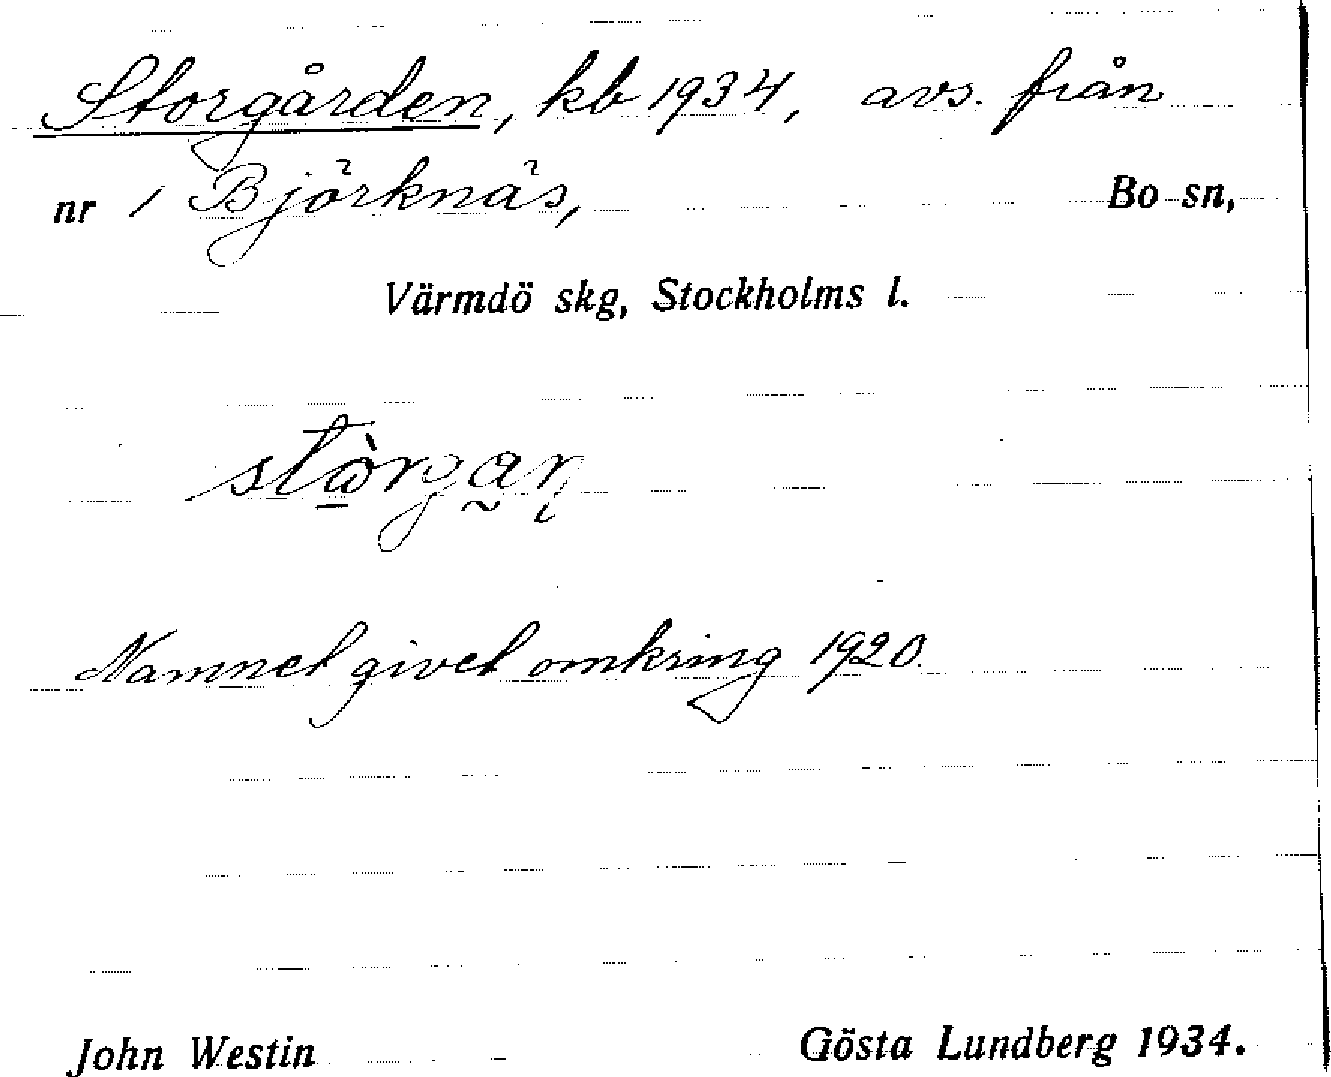 Storgården, kb 1934, avs. från
nr 1 Björknäs, Bo sn,
Värmdö skg, Stockholms l.
Namnet givet omkring 1920.
John Westin Gösta Lundberg 1934.